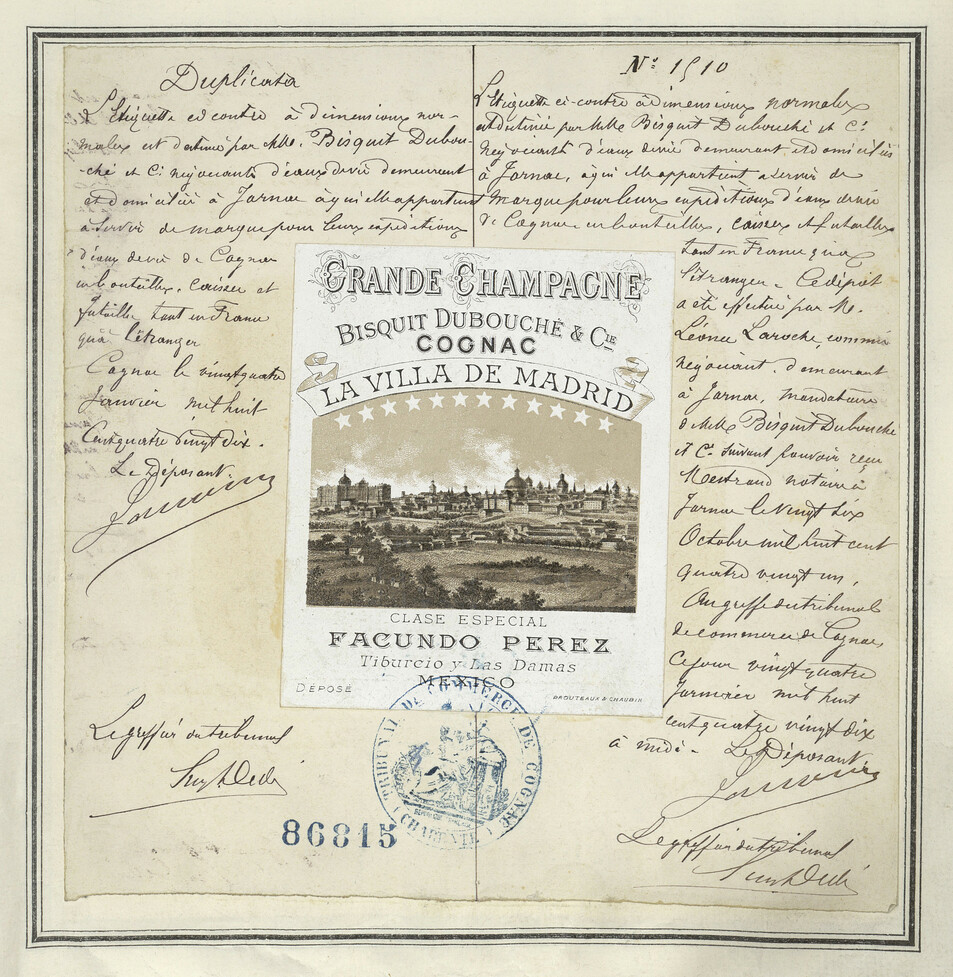 Duplicata
L'Etiquette ci contre à dimensions nor-
males est destinée par MM. Bisquit Dubou-
-ché et Cie négociants d'eaux de vie demeurant
et domiciliés à Jarnac à qui elle appartient
à servir de marque pour leurs expéditions
d'eaux de vie de Cognac
en bouteilles, caisses et
futailles tant en France
qu'à l'étranger
Cognac le vingt quatre
Janvier mil huit
Cent quatre vingt dix.
Le Déposant.
Le greffier du tribunal
Nº 1510
L'Etiquette ci-contre à dimensions normales
est destinée par MM. Bisquit Dubouché et Cie
négociants d'eaux de vie demeurant et domiciliés
à Jarnac, à qui elle appartient à servir de
marque pour leurs expéditions d'eaux de vie
de Cognac en bouteilles, caisses et futailles
tant en France qu'à
l'étranger. Ce dépôt
a été effectué par M.
Léonce Laroche, commis
négociant, demeurant
à Jarnac, mandataire
de MM. Bisquit Dubouché
et Cie suivant pouvoir reçu
notaire à
Jarnac le vingt six
Octobre mil huit cent
quatre vingt un,
Au greffe du tribunal
de commerce de Cognac
Ce jour vingt quatre
Janvier mil huit
cent quatre vingt dix
à midi. Le Déposant
Le greffier du tribunal
GRANDE CHAMPAGNE
BISQUIT DUBOUCHÉ & CIE
COGNAC
LA VILLA DE MADRID
CLASE ESPECIAL
FACUNDO PEREZ
Tiburcio y Las Damas
MEXICO
DÉPOSÉ
BROUTEAUX & CHAUBIN
TRIBUNAL DE COMMERCE DE COGNAC
(CHARENTE)
86815